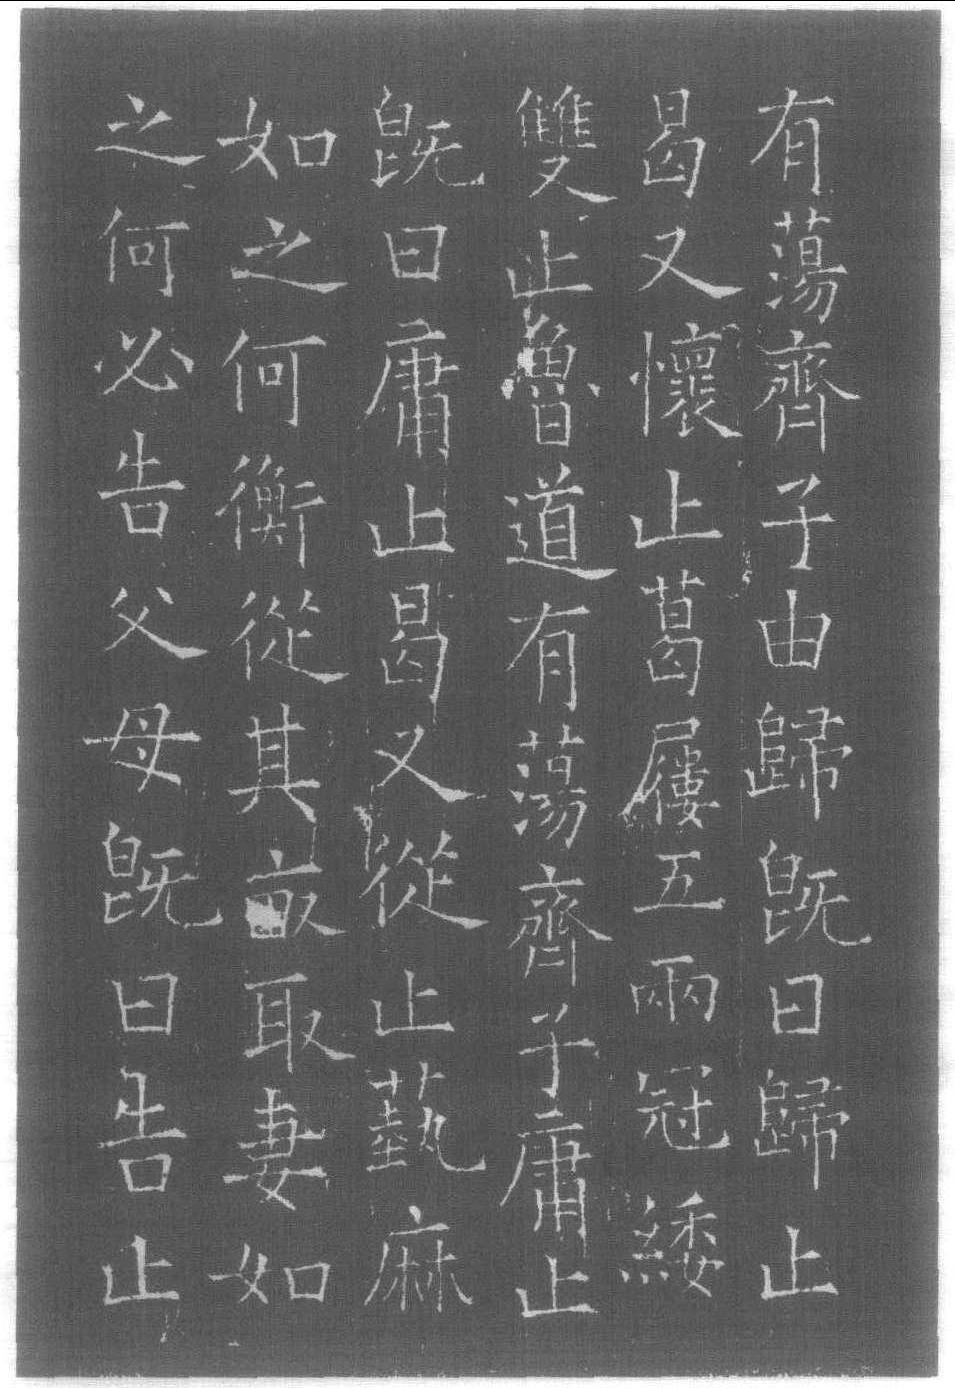 有蕩齊子由歸既曰歸止
曷又懷止葛屨五兩冠緌
雙止魯道有蕩齊子庸止
既曰庸止曷又從止蓺麻
如之何衡從其畝取妻如
之何必告父母既曰告止